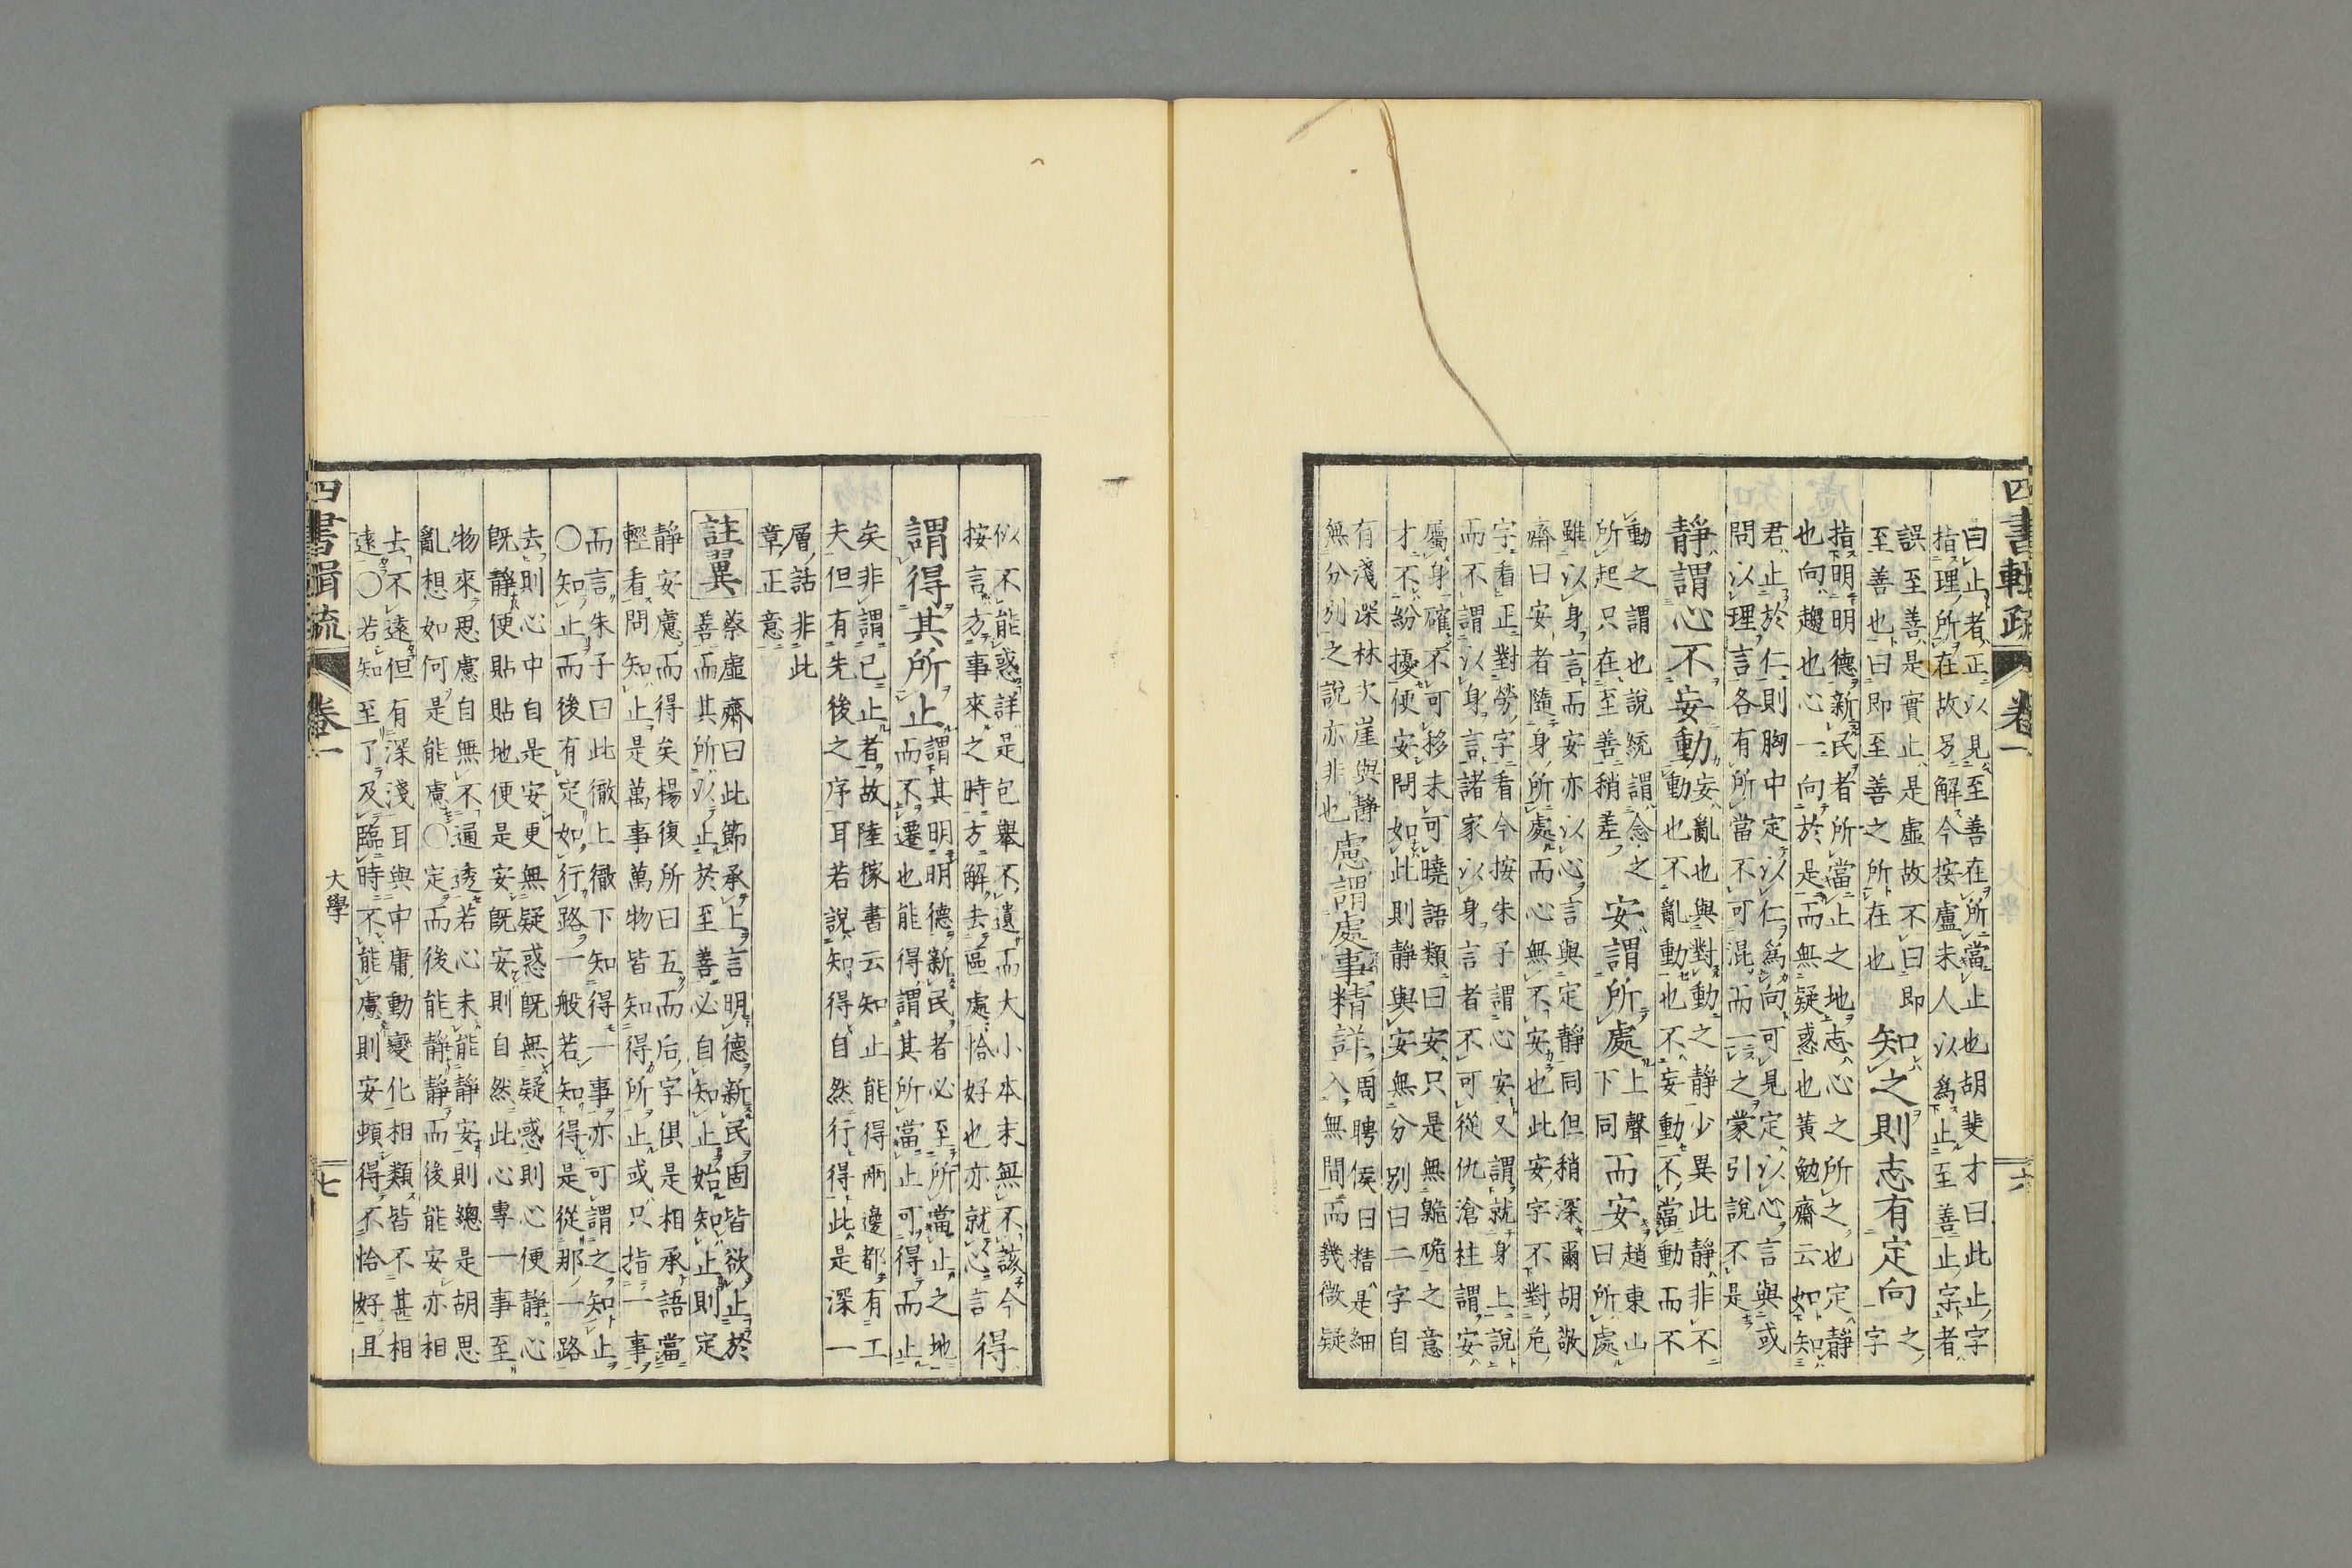 四書輯疏 卷一 六
曰止者正以見至善在所當止也胡斐才曰此止字
指理所在故另解今按盧未人以爲止至善止字者
誤至善是實止是虛故不曰即
至善也曰即至善之所在也
知之則志有定向
之
字
指明明德新民者所當止之地志心之所之也定靜
也向趨也心一向於是而無疑惑也黃勉齋云如知
君止於仁則胸中定以仁爲向可見定以心言與或
問以理言各有所當不可混而一之蒙引說不是
靜謂心不妄動
妄亂也與對動之靜少異此靜非不
動也不亂動也不妄動不當動而不
動之謂也說統謂念之
所起只在至善稍差
安謂所處
上聲
下同
而安
趙東山
曰所處
雖以身言而安亦以心言與定靜同但稍深爾胡敬
齋曰安者隨身所處而心無不安也此安字不對危
字看正對勞字看今按朱子謂心安又謂就身上說
而不謂以身言諸家以身言者不可從仇滄柱謂安
屬身確不可移未可曉語類曰安只是無臲卼之意
才不紛擾便安問如此則靜與安無分別曰二字自
有淺深林次崖與靜
無分別之說亦非也
慮謂處事精詳
周聘侯曰精是細
入無間而幾微疑
似不能惑詳是包舉不遺而大小本末無不該今
按言方事來之時方解去區處恰好也亦就心言
得
謂得其所止
謂其明明德新民者必至所當止之地
而不遷也能得謂其所當止可得而止
矣非謂已止者故陸稼書云知止能得兩邊都有工
夫但有先後之序耳若說知得自然行得此是深一
層話非此
章正意
註翼
蔡虛齋曰此節承上言明德新民固皆欲止於
善而其所以止於至善必自知止始知止則定
靜安慮而得矣楊復所曰五而后字俱是相承語當
輕看問知止是萬事萬物皆知得所止或只指一事
而言朱子曰此徹上徹下知得一事亦可謂之知止
〇知止而後有定如行路一般若知得是從那一路
去則心中自是安更無疑惑既無疑惑則心便靜心
既靜便貼貼地便是安既安則自然此心專一事至
物來思慮自無不通透若心未能靜安則總是胡思
亂想如何是能慮〇定而後能靜靜而後能安亦相
去不遠但有深淺耳與中庸動變化相類皆不甚相
遠〇若知至了及臨時不能慮則安頓得不恰好且
四書輯疏 卷一 大學 七